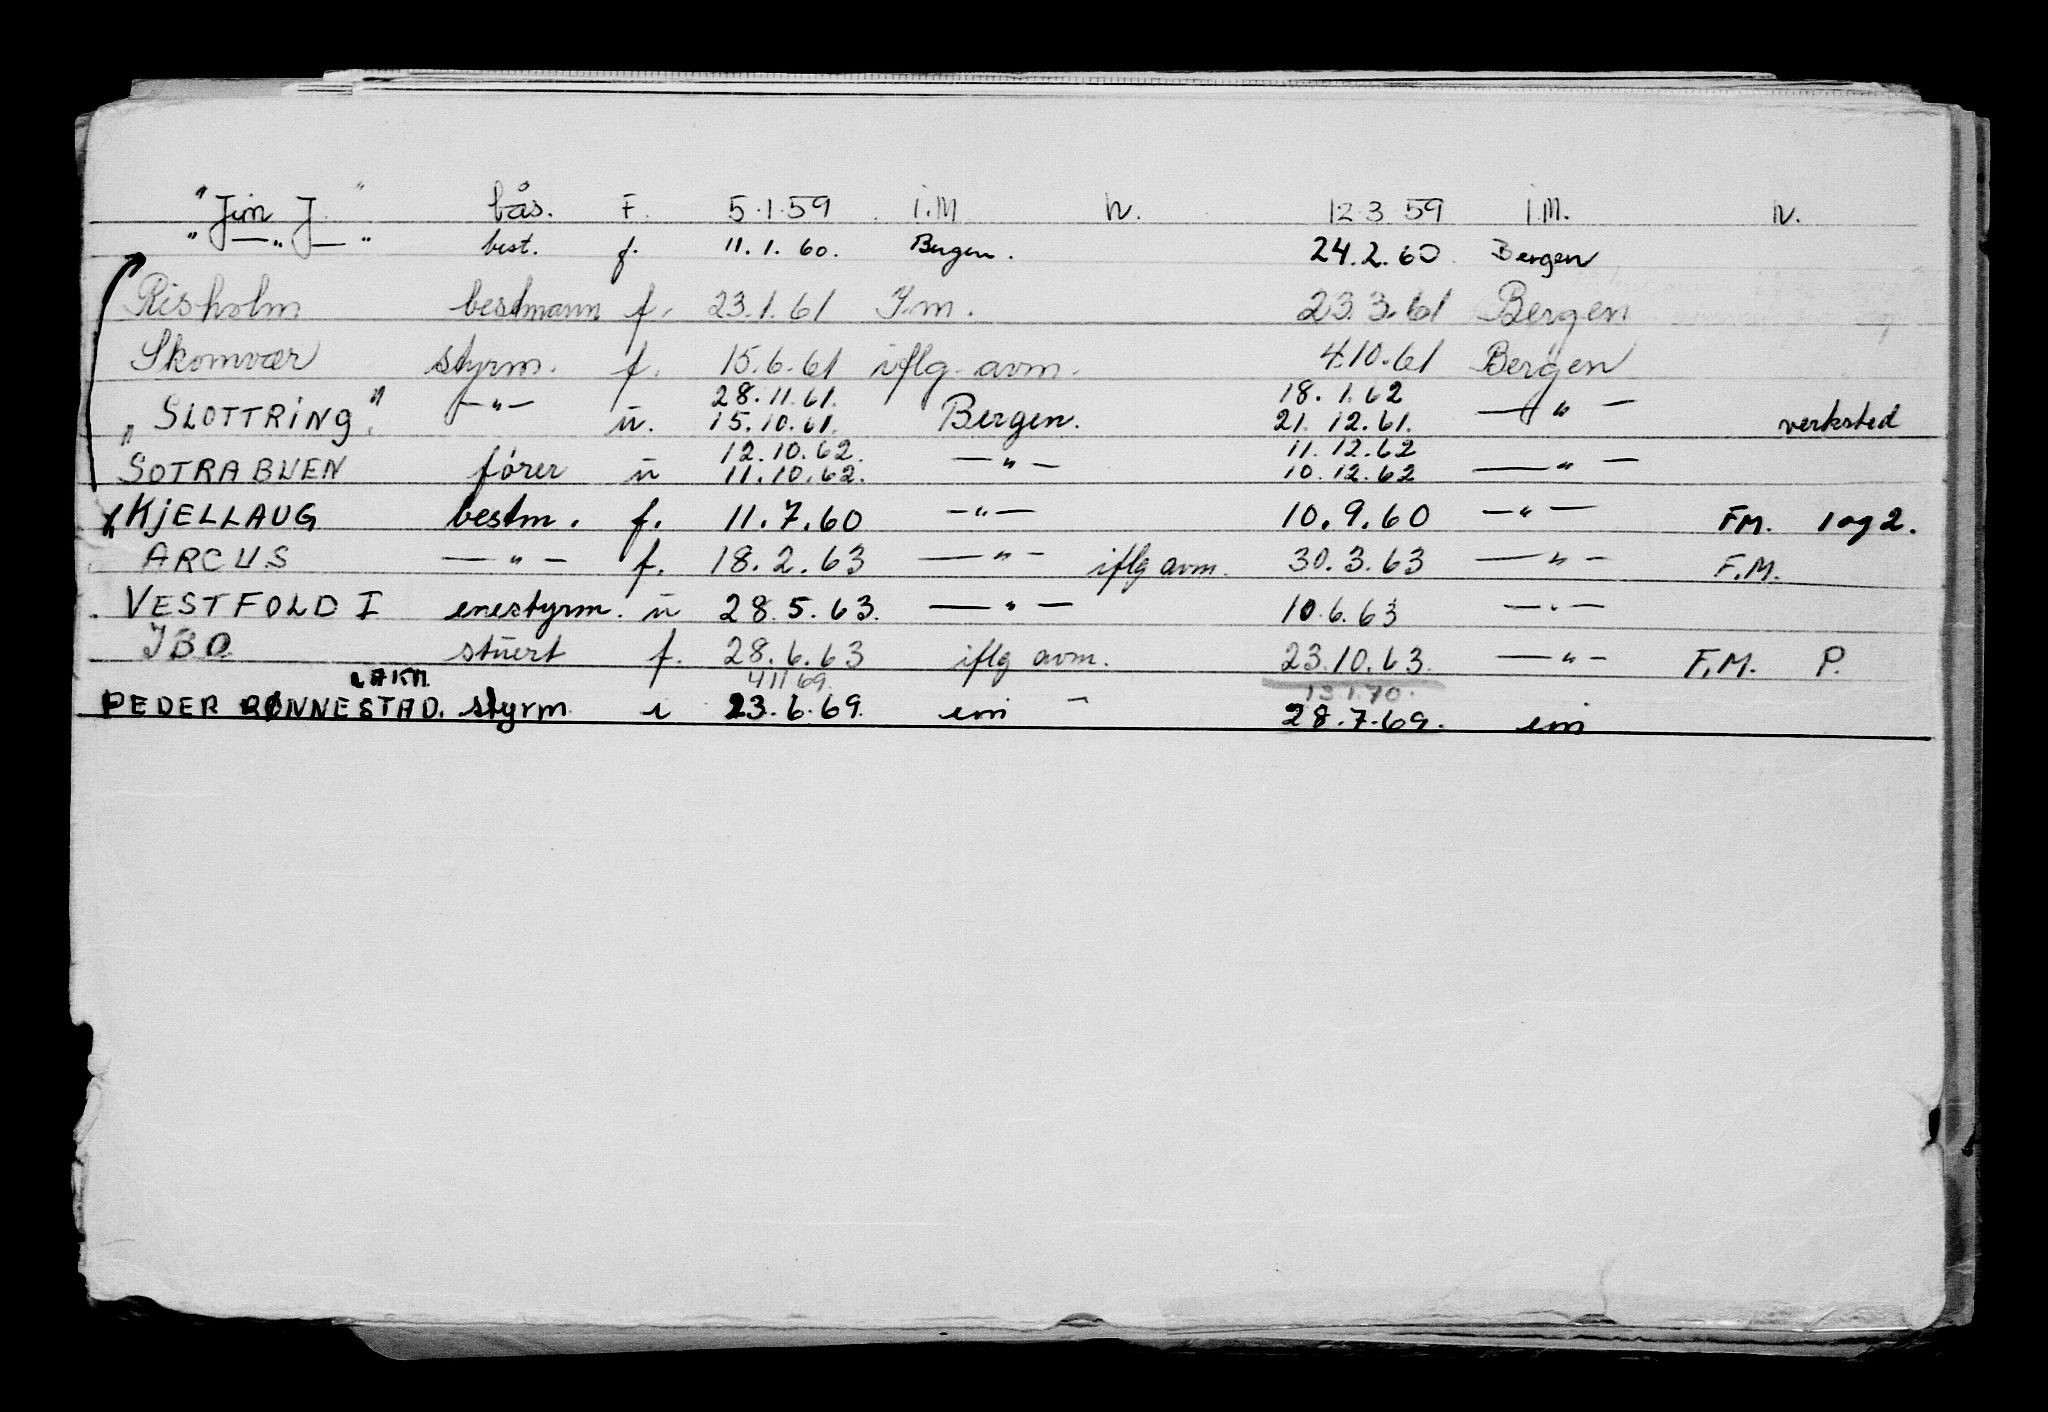 "Jim J." bås. F. 5.1.59 i.M N. 12.3.59 i.M. N.
" — " — " best. f. 11.1.60. Bergen. 24.2.60 Bergen
Risholm bestmann f. 23.1.61 I.m. 23.3.61 Bergen
Skomvær styrm. f. 15.6.61 iflg. avm. 4.10.61 Bergen
28.11.61. 18.1.62
"SLOTTRING" — " — u. 15.10.61. Bergen. 21.12.61. — " — verksted
12.10.62. 11.12.62
SOTRABUEN fører u 11.10.62. — " — 10.12.62 — " —
KJELLAUG bestm. f. 11.7.60 — " — 10.9.60 — " — FM. 1 og 2.
ARCUS — " — f. 18.2.63 — " — iflg avm. 30.3.63 — " — F.M.
VESTFOLD I enestyrm. u 28.5.63. — " — 10.6.63 — " —
IBO stuert f. 28.6.63 iflg avm. 23.10.63. — " — F.M. P.
4 11 69. 13.1.70.
PEDER RØNNESTAD. styrm. i 23.6.69. im 28.7.69. im